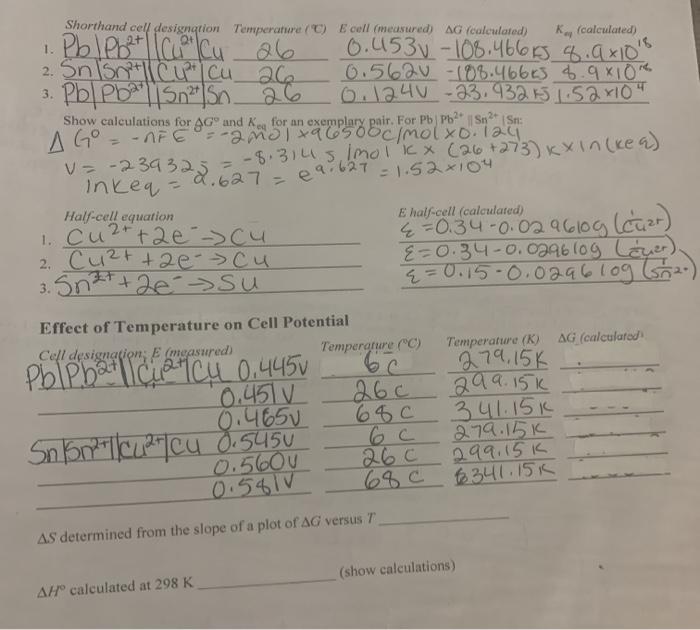 Shorthand cell designation Temperature (°C) E cell (measured) ΔG (calculated) Keq (calculated)
1. Pb|Pb2+||Cu2+|Cu 26 0.453v -108.466KJ 8.9x10^18
2. Sn|Sn2+||Cu2+|Cu 26 0.562v -108.466KJ 8.9x10^18
3. Pb|Pb2+||Sn2+|Sn 26 0.124v -23.932KJ 1.52x10^4
Show calculations for ΔG° and Keq for an exemplary pair. For Pb | Pb2+ || Sn2+ | Sn:
ΔG° = -nFE° = -2mol x 96500c/mol x 0.124
V = -23932J = -8.314 J/mol K x (26+273) K x ln(keq)
lnKeq = 9.627 = e^9.627 = 1.52x10^4
Half-cell equation E half-cell (calculated)
1. Cu2+ +2e- → Cu ξ = 0.34-0.0296log (1/Cu2+)
2. Cu2+ +2e- → Cu ξ = 0.34-0.0296log (1/Cu2+)
3. Sn2+ +2e- → Su ξ = 0.15-0.0296log (1/Sn2+)
Effect of Temperature on Cell Potential
Cell designation; E (measured) Temperature (°C) Temperature (K) ΔG (calculated)
Pb|Pb2+||Cu2+|Cu 0.445v 6 C 279.15K
0.451v 26 C 299.15K
0.465v 68 C 341.15K
Sn|Sn2+||Cu2+|Cu 0.545v 6 C 279.15K
0.560v 26 C 299.15K
0.581v 68 C 341.15K
ΔS determined from the slope of a plot of ΔG versus T
ΔH° calculated at 298 K (show calculations)